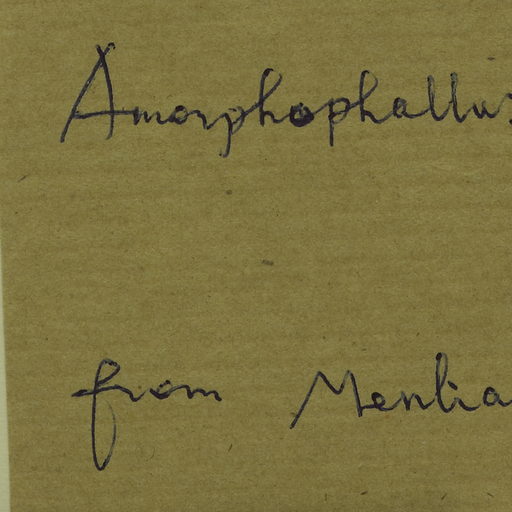 Amorphophallus
from Menlia